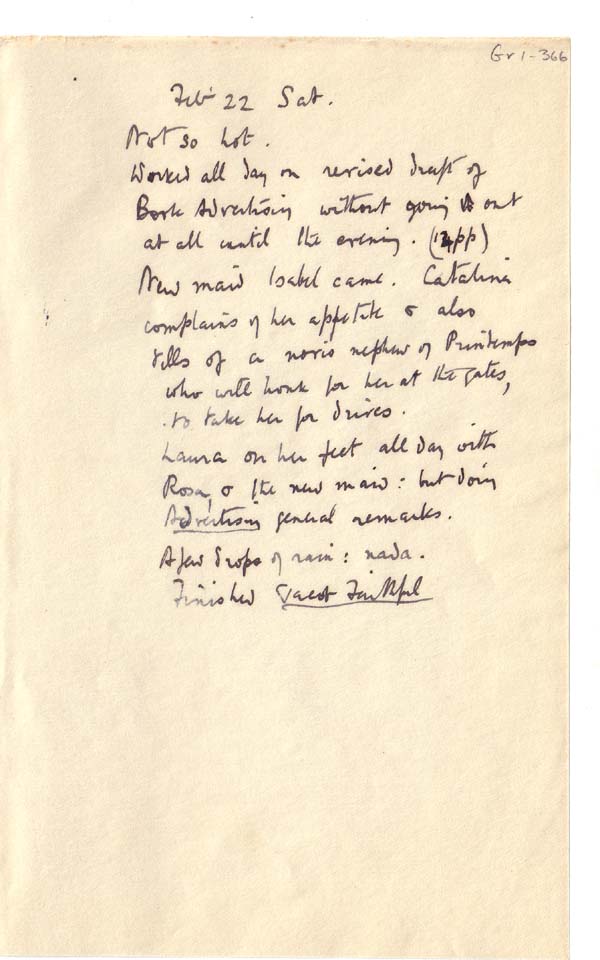 Gr 1-366
Feb 22 Sat.
Not so hot.
Worked all day on revised draft of
Book Advertising without going out
at all until the evening. (14pp)
New maid Isabel came. Catalina
complains of her appetite & also
tells of a novio nephew of Printemps
who will honk for her at the gates,
to take her for drives.
Laura on her feet all day with
Rosa, & the new maid: but doing
Advertising general remarks.
A few drops of rain: nada.
Finished Faithful